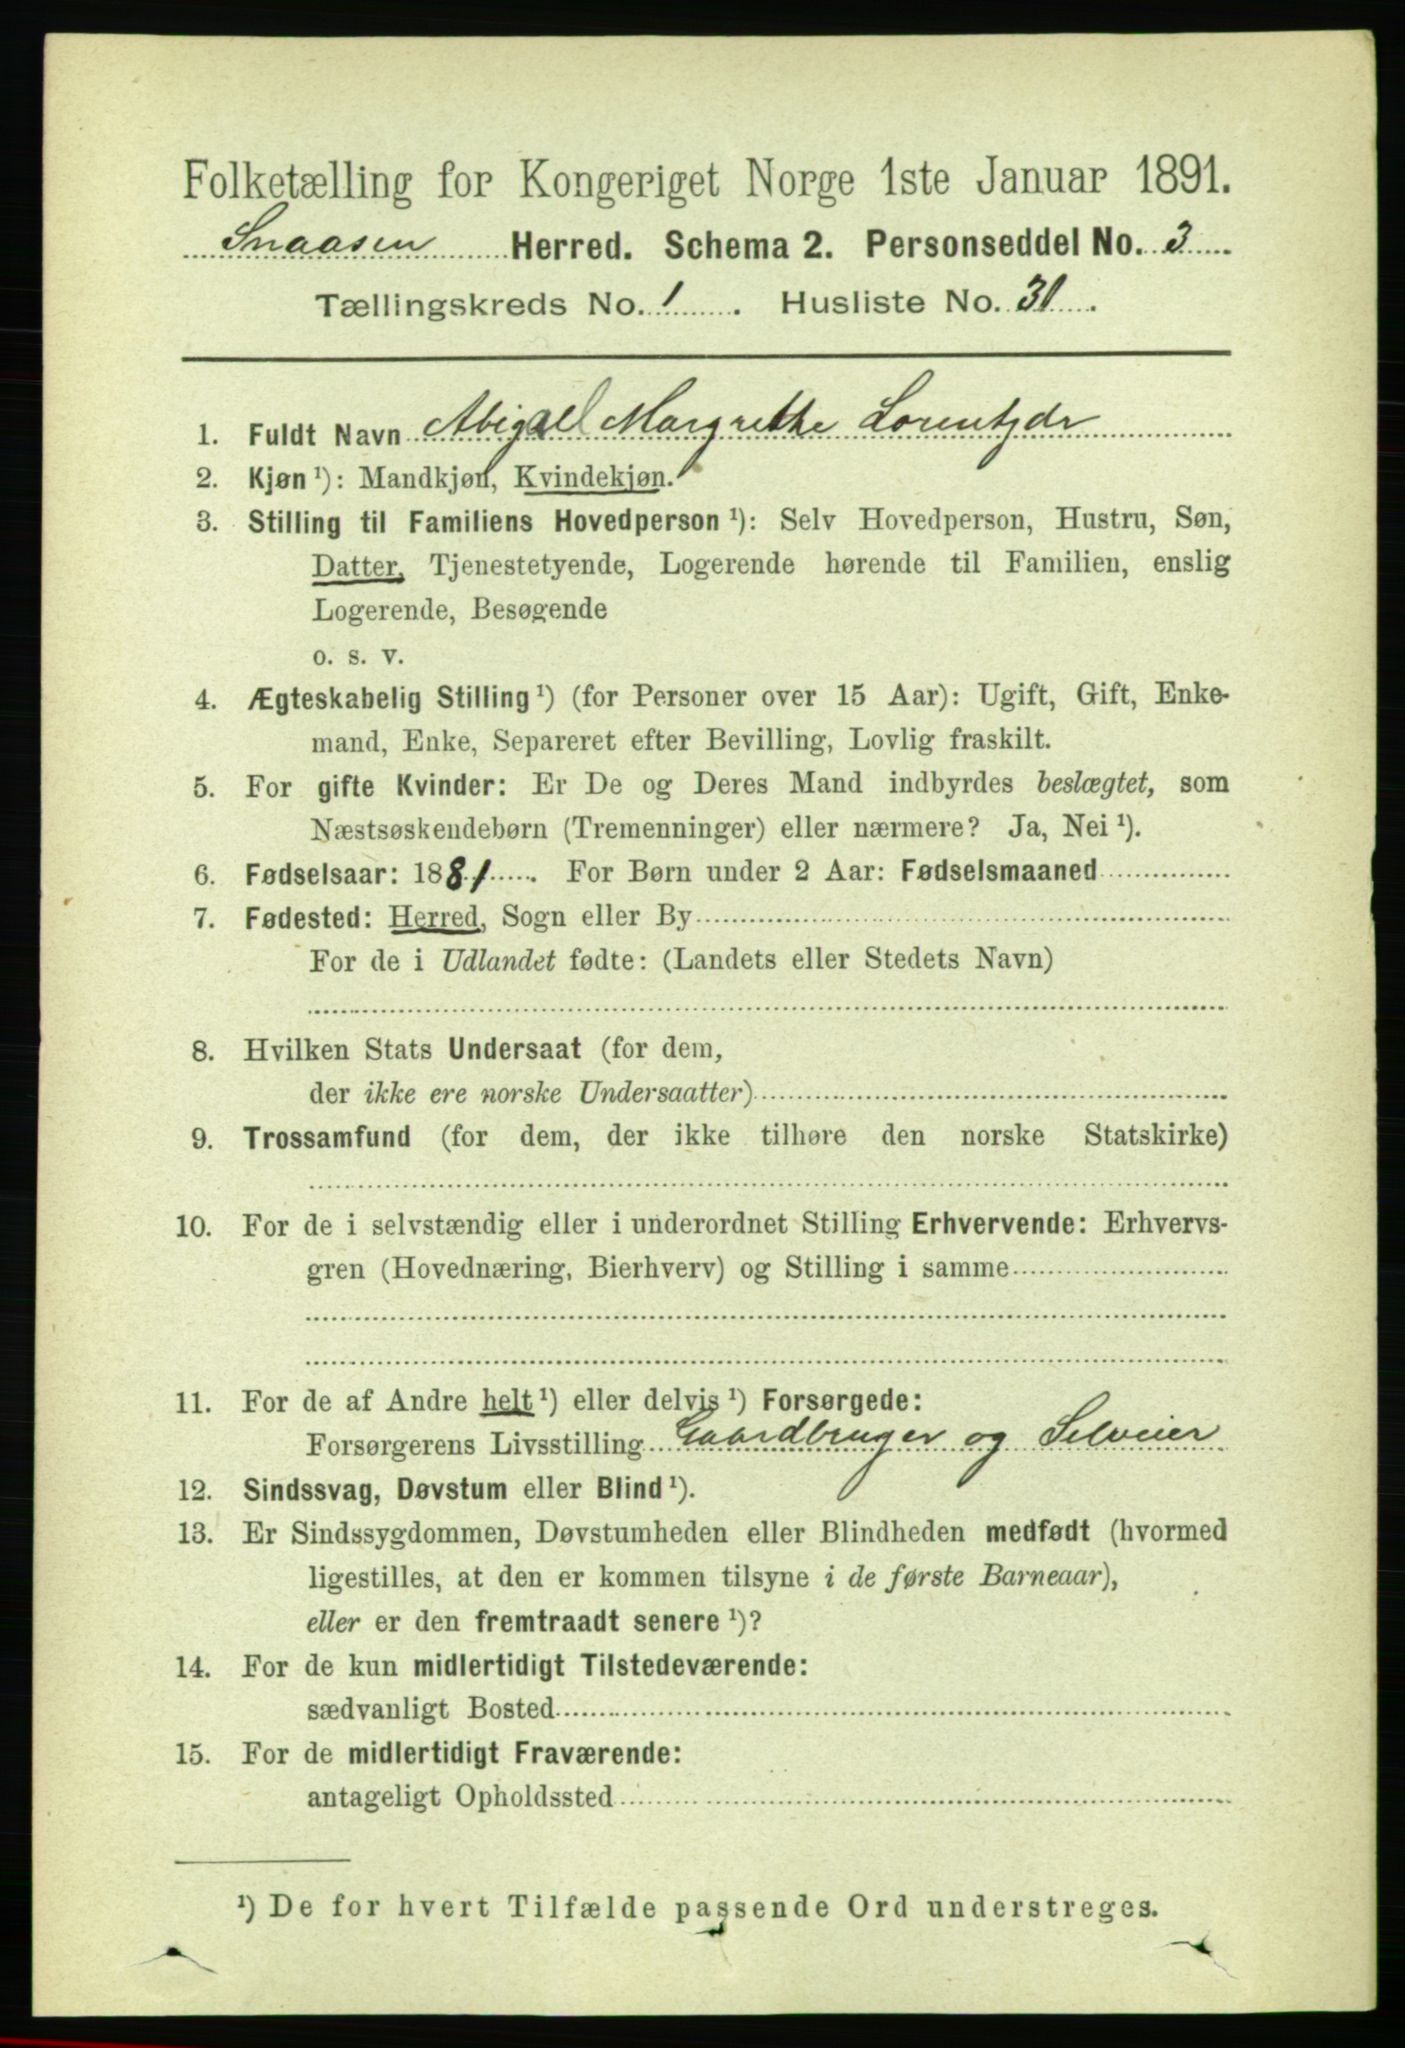 Folketælling for Kongeriget Norge 1ste Januar 1891.
Snaasen Herred. Schema 2. Personseddel No. 3
Tællingskreds No. 1. Husliste No. 31.
1. Fuldt Navn Abigael Margrethe Lorentzdr
2. Kjøn ¹): Mandkjøn, Kvindekjøn.
3. Stilling til Familiens Hovedperson ¹): Selv Hovedperson, Hustru, Søn,
Datter, Tjenestetyende, Logerende hørende til Familien, enslig
Logerende, Besøgende
o. s. v.
4. Ægteskabelig Stilling ¹) (for Personer over 15 Aar): Ugift, Gift, Enke-
mand, Enke, Separeret efter Bevilling, Lovlig fraskilt.
5. For gifte Kvinder: Er De og Deres Mand indbyrdes beslægtet, som
Næstsøskendebørn (Tremenninger) eller nærmere? Ja, Nei ¹).
6. Fødselsaar: 1881. For Børn under 2 Aar: Fødselsmaaned
7. Fødested: Herred, Sogn eller By
For de i Udlandet fødte: (Landets eller Stedets Navn)
8. Hvilken Stats Undersaat (for dem,
der ikke ere norske Undersaatter)
9. Trossamfund (for dem, der ikke tilhøre den norske Statskirke)
10. For de i selvstændig eller i underordnet Stilling Erhvervende: Erhvervs-
gren (Hovednæring, Bierhverv) og Stilling i samme
11. For de af Andre helt ¹) eller delvis ¹) Forsørgede:
Forsørgerens Livsstilling Gaardbruger og Selveier
12. Sindssvag, Døvstum eller Blind ¹).
13. Er Sindssygdommen, Døvstumheden eller Blindheden medfødt (hvormed
ligestilles, at den er kommen tilsyne i de første Barneaar),
eller er den fremtraadt senere ¹)?
14. For de kun midlertidigt Tilstedeværende:
sædvanligt Bosted
15. For de midlertidigt Fraværende:
antageligt Opholdssted
¹) De for hvert Tilfælde passende Ord understreges.